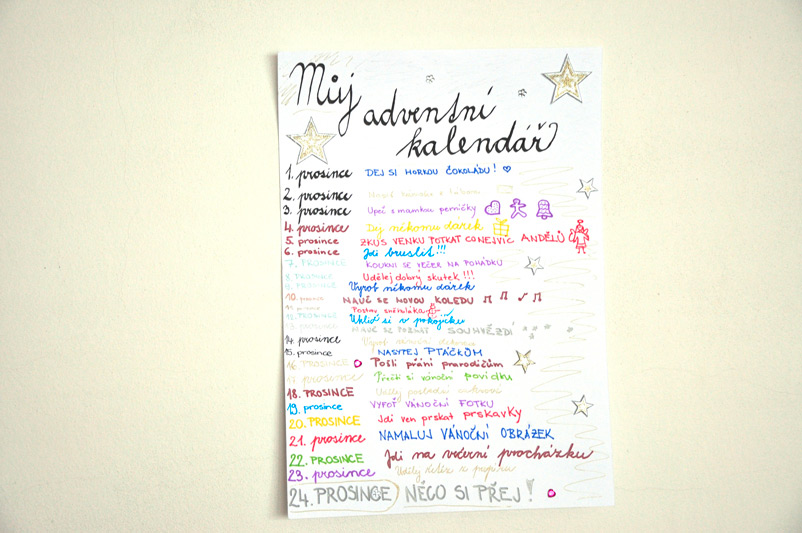 Můj
adventní
kalendář
1. prosince DEJ SI HORKOU ČOKOLÁDU!
2. prosince
3. prosince Upeč s mamkou perníčky
4. prosince Dej někomu dárek
5. prosince ZKUS VENKU POTKAT CO NEJVÍC ANDĚLŮ
6. prosince Jdi bruslit!!!
7. PROSINCE KOUKNI SE VEČER NA POHÁDKU
8. PROSINCE Udělej dobrý skutek!!!
9. PROSINCE Vyrob někomu dárek
10. prosince NAUČ SE NOVOU KOLEDU
11. prosince Postav sněhuláka
12. PROSINCE Ukliď si v pokojíku
13. prosince NAUČ SE POZNAT SOUHVĚZDÍ
14. prosince Vyrob vánoční
15. prosince NASYPEJ PTÁČKŮM
16. PROSINCE Pošli přání prarodičům
17. prosince Přečti si vánoční povídku
18. PROSINCE poslední cukroví
19. prosince VYFOŤ VÁNOČNÍ FOTKU
20. PROSINCE Jdi ven prskat prskavky
21. prosince NAMALUJ VÁNOČNÍ OBRÁZEK
22. PROSINCE Jdi na večerní procházku
23. prosince Udělej řetěz z papíru
24. PROSINCE NĚCO SI PŘEJ!